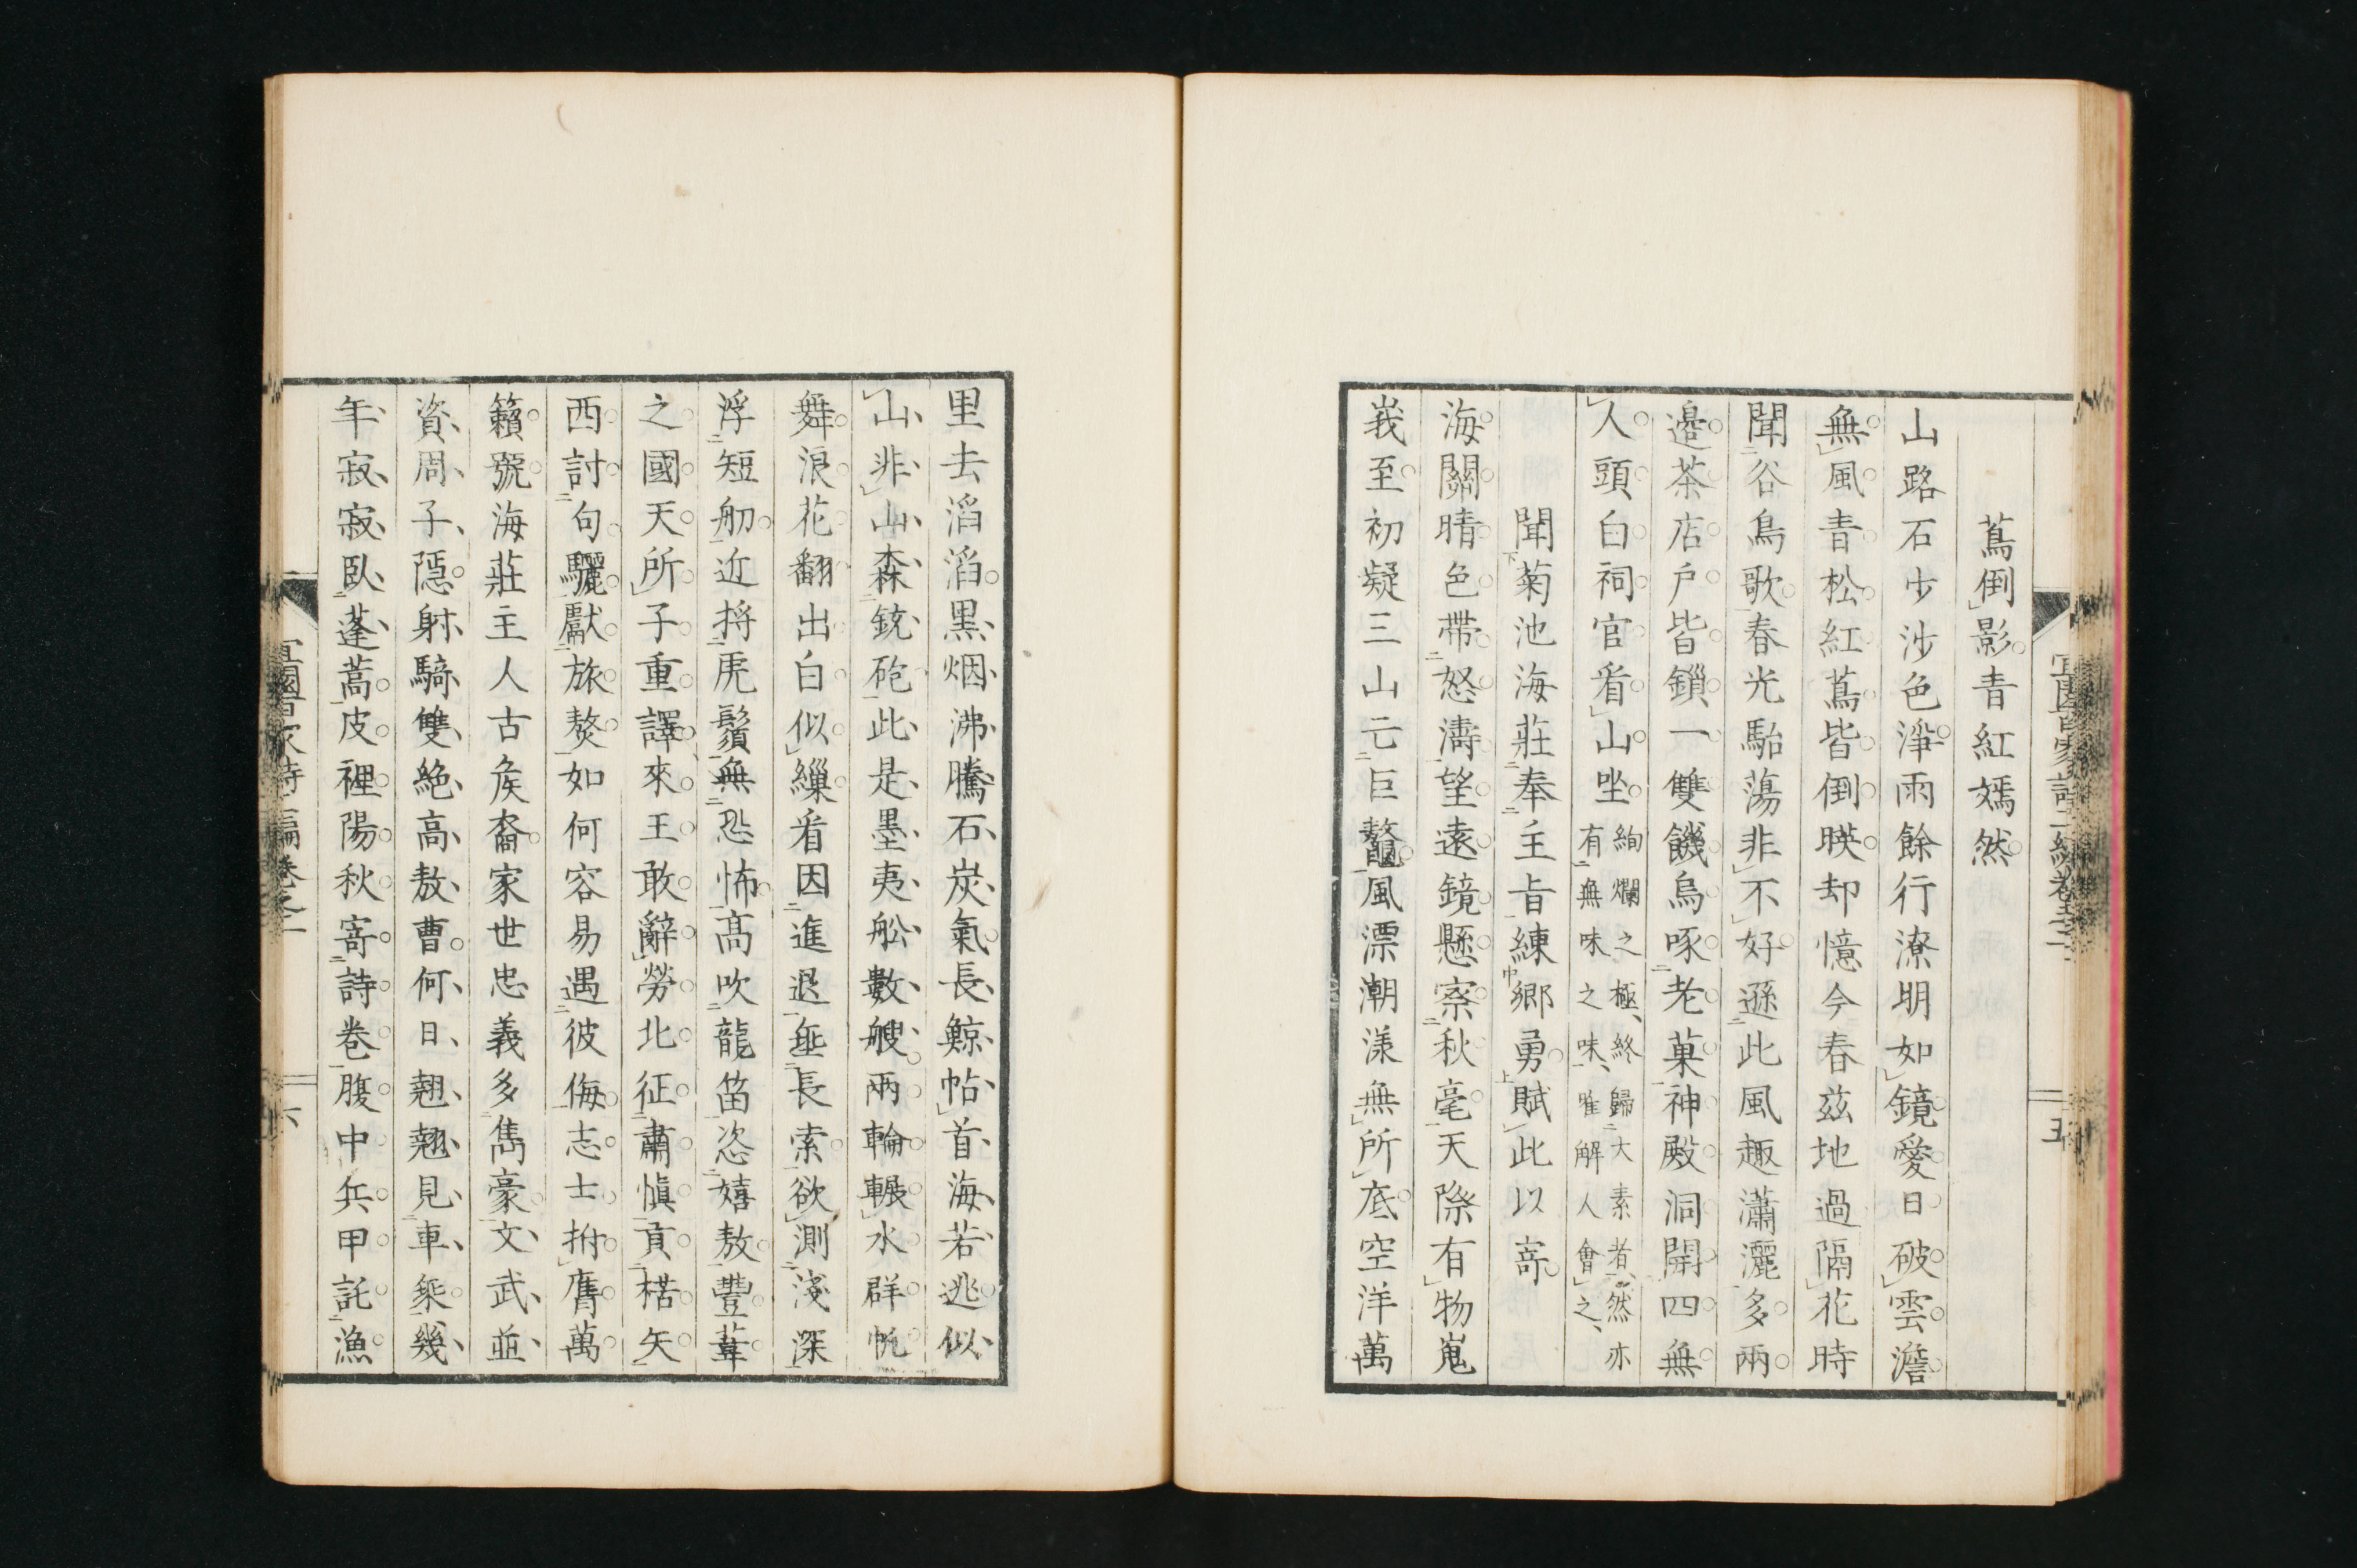 蔦倒影青紅嫣然
山路石少沙色淨雨餘行潦明如鏡愛日破雲澹
無風青松紅蔦皆倒暎却憶今春茲地過隔花時
聞谷鳥歌春光駘蕩非不好遜此風趣瀟灑多兩
邊茶店戶皆鎖一雙饑烏啄老菓神殿洞開四無
人頭白祠官看山坐
絢爛之極終歸大素者然亦
有無味之味唯解人會之
聞菊池海莊奉主旨練鄉勇賦此以寄
海關晴色帶怒濤望遠鏡懸察秋毫天際有物嵬
峩至初疑三山亡巨鼇風漂潮漾無所底空洋萬
里去滔滔黑烟沸騰石炭氣長鯨帖首海若逃似
山非山森銃砲此是墨夷舩數艘兩輪輾水群帆
舞浪花翻出白似繅看因進退垂長索欲測淺深
浮短舠近捋虎鬚無恐怖高吹龍笛恣嬉敖豐葦
之國天所子重譯來王敢辭勞北征肅愼貢楛矢
西討句驪獻旅獒如何容易遇彼侮志士拊膺萬
籟號海莊主人古矦裔家世忠義多雋豪文武並
資周子隱射騎雙絕高敖曹何日翹翹見車乘幾
年寂寂臥蓬蒿皮裡陽秋寄詩卷腹中兵甲託漁